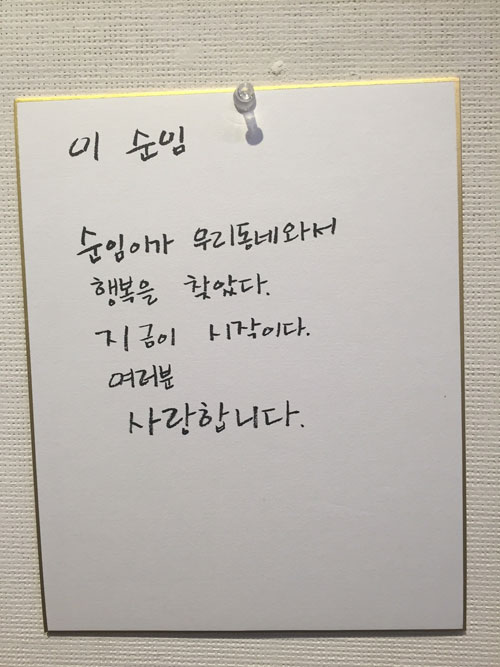 이 순임
순임이가 우리동네와서
행복을 찾았다.
지금이 시작이다.
여러분
사랑합니다.